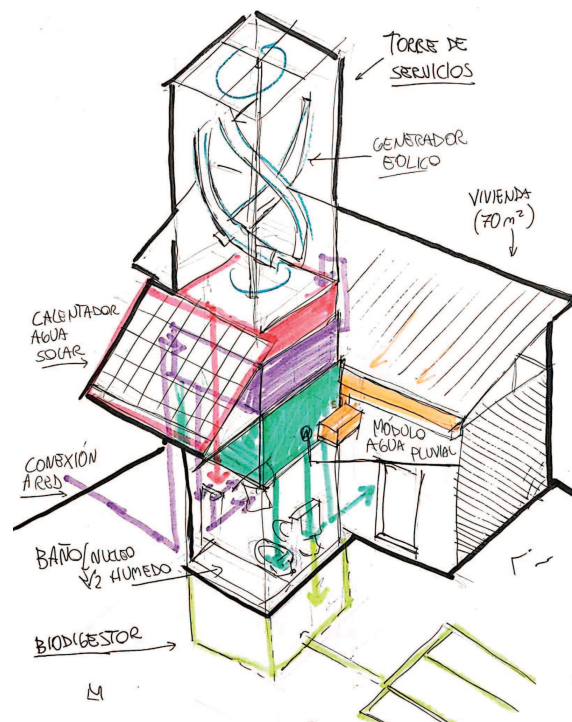 TORRE DE
SERVICIOS
GENERADOR
EOLICO
VIVIENDA
(70 m²)
CALENTADOR
AGUA
SOLAR
MÓDULO
AGUA PLUVIAL
CONEXIÓN
A RED
BAÑO/NUCLEO
HUMEDO
BIODIGESTOR